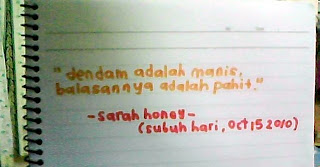 "dendam adalah manis,
balasannya adalah pahit."
-sarah honey-
(subuh hari, oct 15 2010)